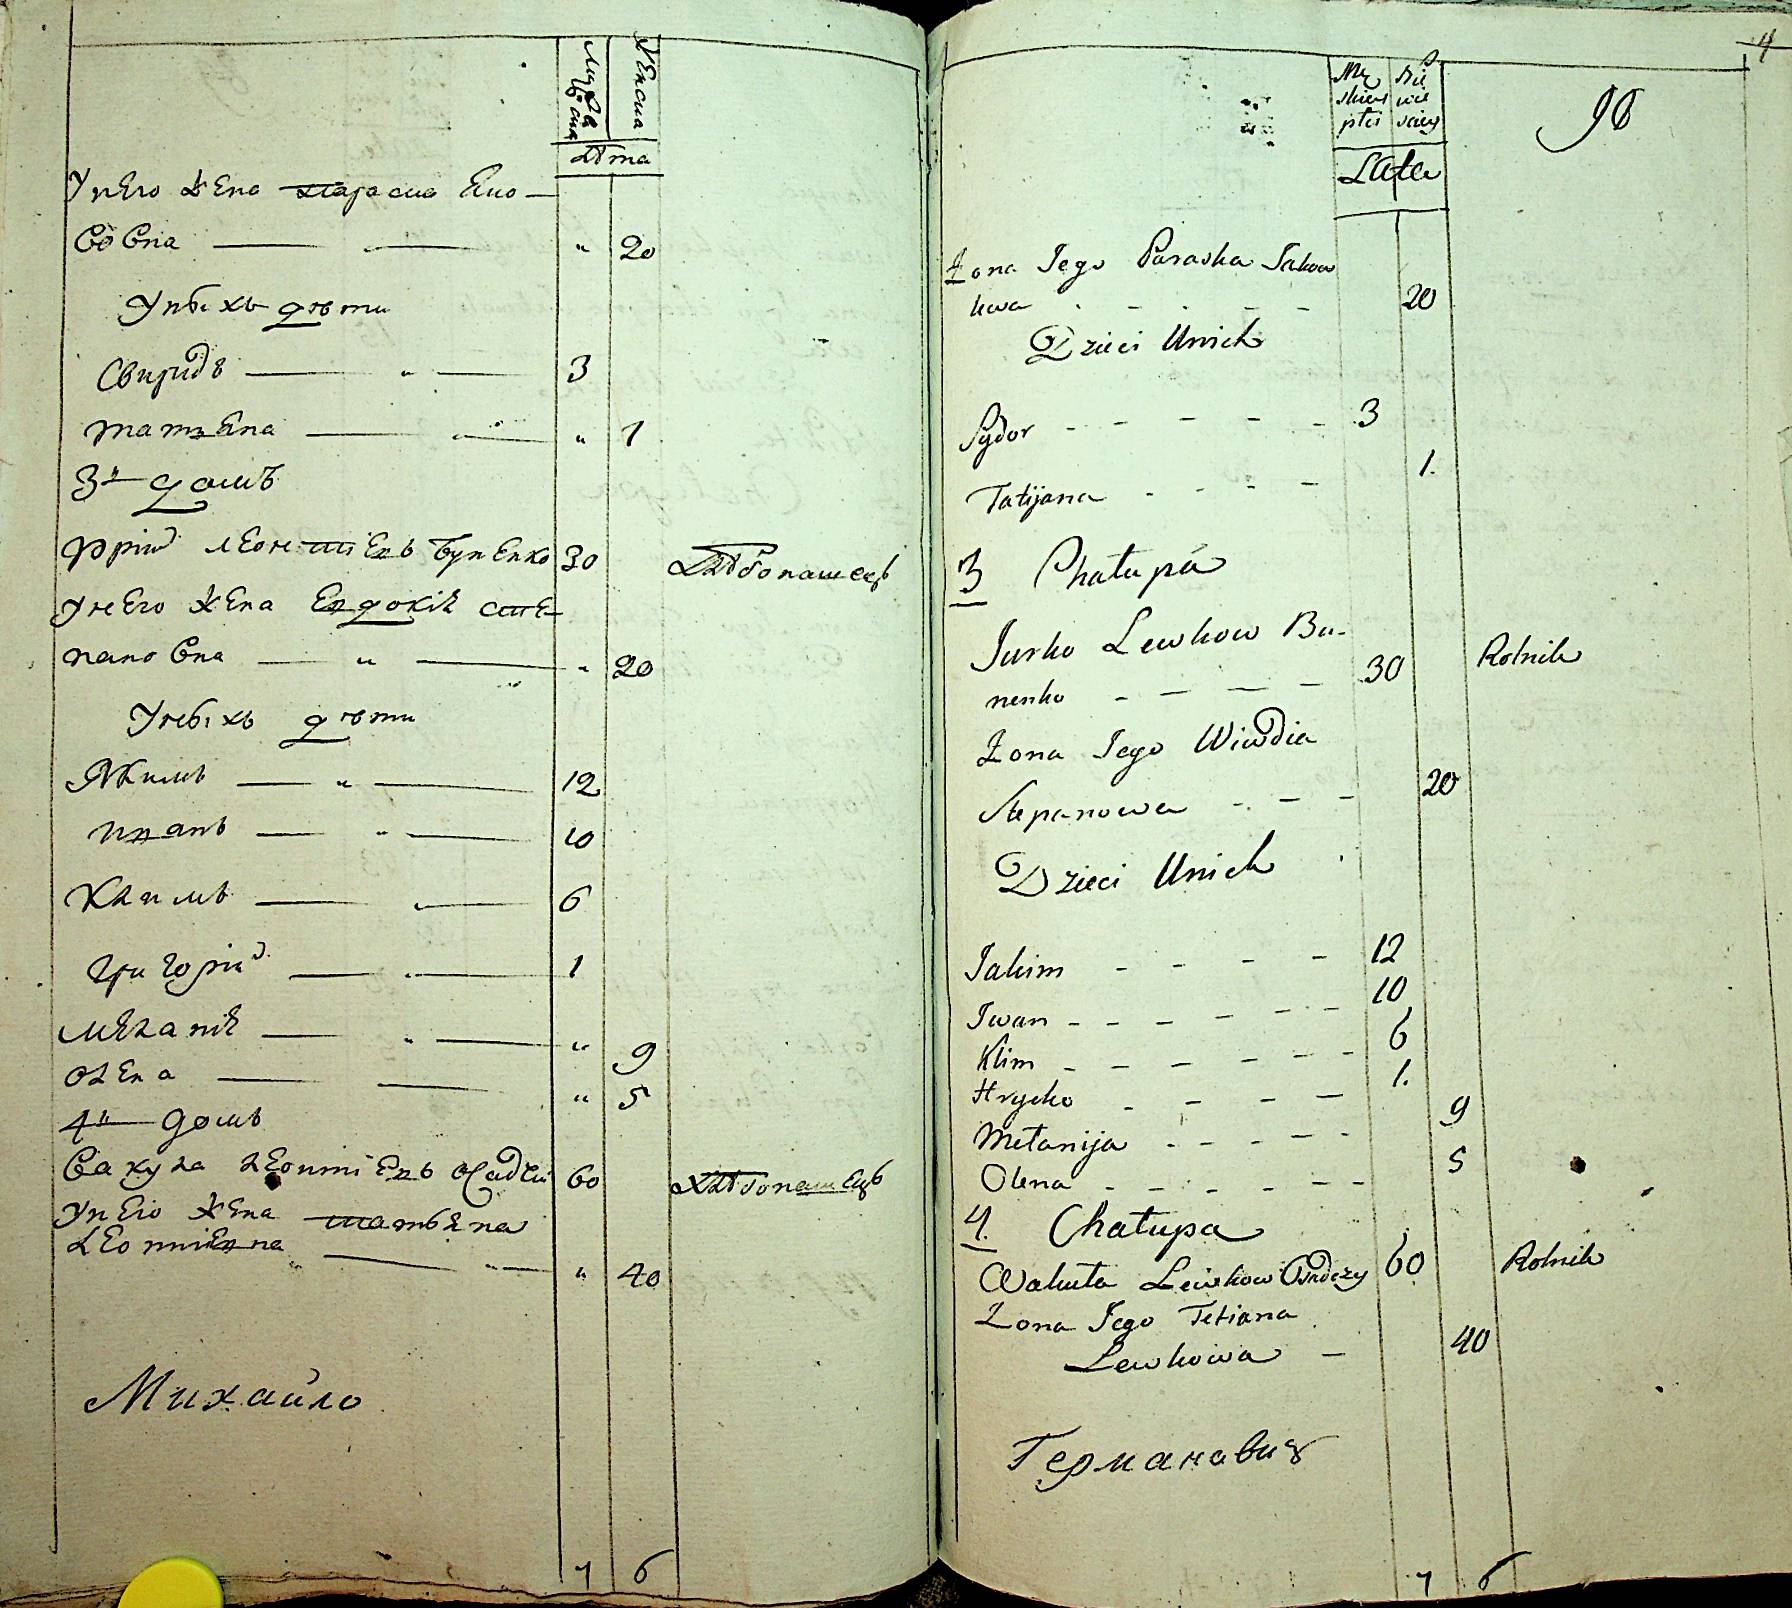 Мужеска Женска
Лѣта
У него жена Параска Яко-
вовна — " — " 20
У ныхъ дѣти
Свиридъ — " — 3
Татіяна — " — " 1
3й домъ
Юрій Леонтіевъ Буненко 30 Хлѣбопашецъ
У него жена Евдокія Сте-
пановна — " — " 20
У ныхъ дѣти
Якимъ — " — 12
Иванъ — " — 10
Климъ — " — 6
Григорій — " — 1
Меланія — " — " 9
Олена — — " 5
4й домъ
Вакула Леонтіевъ Осадчій 60 Хлѣбопашецъ
У него жена Татіяна
Леонтіевна — " — " 40
Михайло
7 6
4
Męskiey płci Niewieściey
Lata
96
Żona Jego Paraska Jakow
kwa - - - - 20
Dzieci Unich
Sydor - - - - - 3
Tatijana - - - - 1.
3 Chałupa
Jurko Lewkow Bu-
nenko - - - - 30 Rolnik
Żona Jego Wiwdia
Stepanowa - - - 20
Dzieci Unich
Jakim - - - - 12
Iwan - - - - - 10
Klim - - - - - 6
Hrycko - - - - 1.
Mełanija - - - - - 9
Olena - - - - - - 5
4. Chałupa
Wakuła Lewkow Osadczy 60 Rolnik
Żona Jego Tetiana
Lewkowa - 40
Германавич
7 6